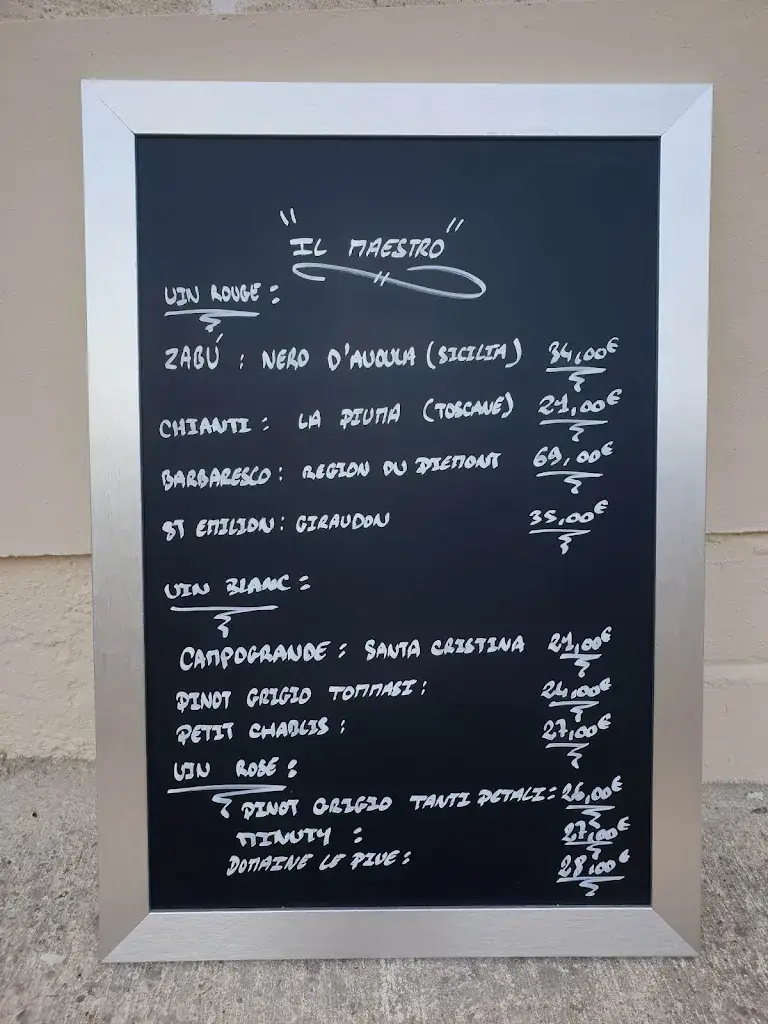 "IL MAESTRO"
VIN ROUGE :
ZABÚ : NERO D'AVOLA (SICILIA) 34,00€
CHIANTI : LA PIUMA (TOSCANE) 21,00€
BARBARESCO : REGION DU PIEMONT 69,00€
ST EMILION : GIRAUDON 35,00€
VIN BLANC :
CAMPOGRANDE : SANTA CRISTINA 21,00€
PINOT GRIGIO TOMMASI : 24,00€
PETIT CHABLIS : 27,00€
VIN ROSE :
PINOT GRIGIO TANTI PETALI : 26,00€
MINUTY : 27,00€
DOMAINE LE PIVE : 28,00€